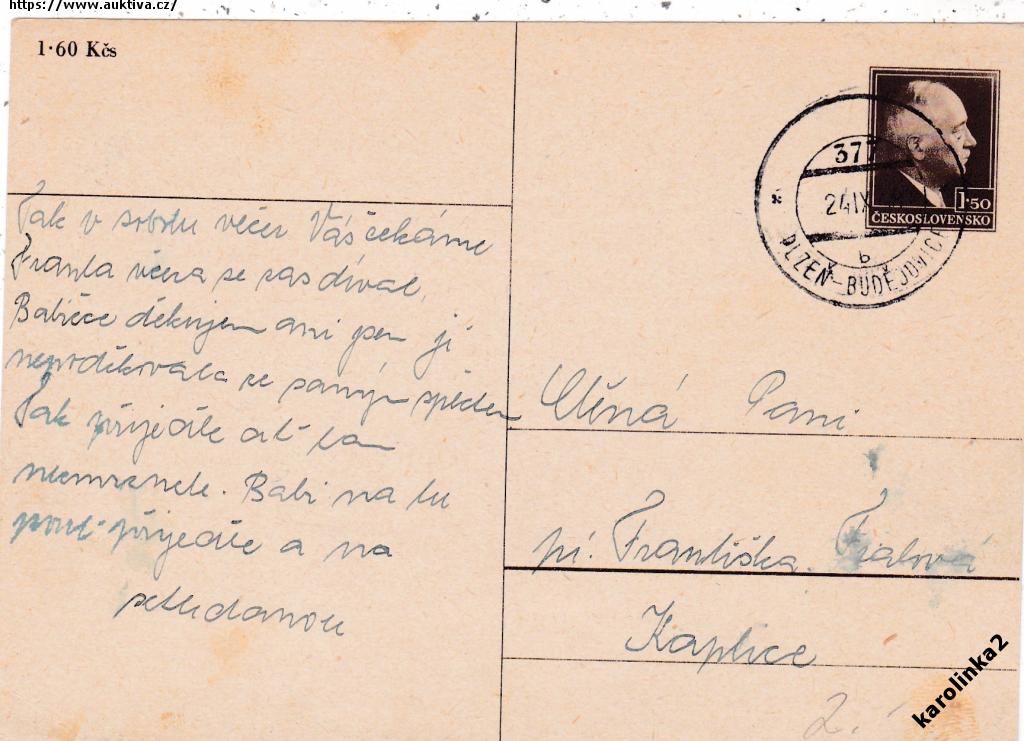 https://www.auktiva.cz/
1·60 Kčs
377
24 IX
b
PLZEŇ–BUDĚJOVICE
1·50
ČESKOSLOVENSKO
Tak v sobotu večer Vás čekáme
Franta včera se
Babičce děkujem ani jsem jí
nepoděkovala se samým spěchem
Tak přijeďte ať tam
nezmrznete. Babi na tu
pouť přijeďte a na
shledanou
Ctěná Paní
pí. Františka Fialová
Kaplice
2.
karolinka2